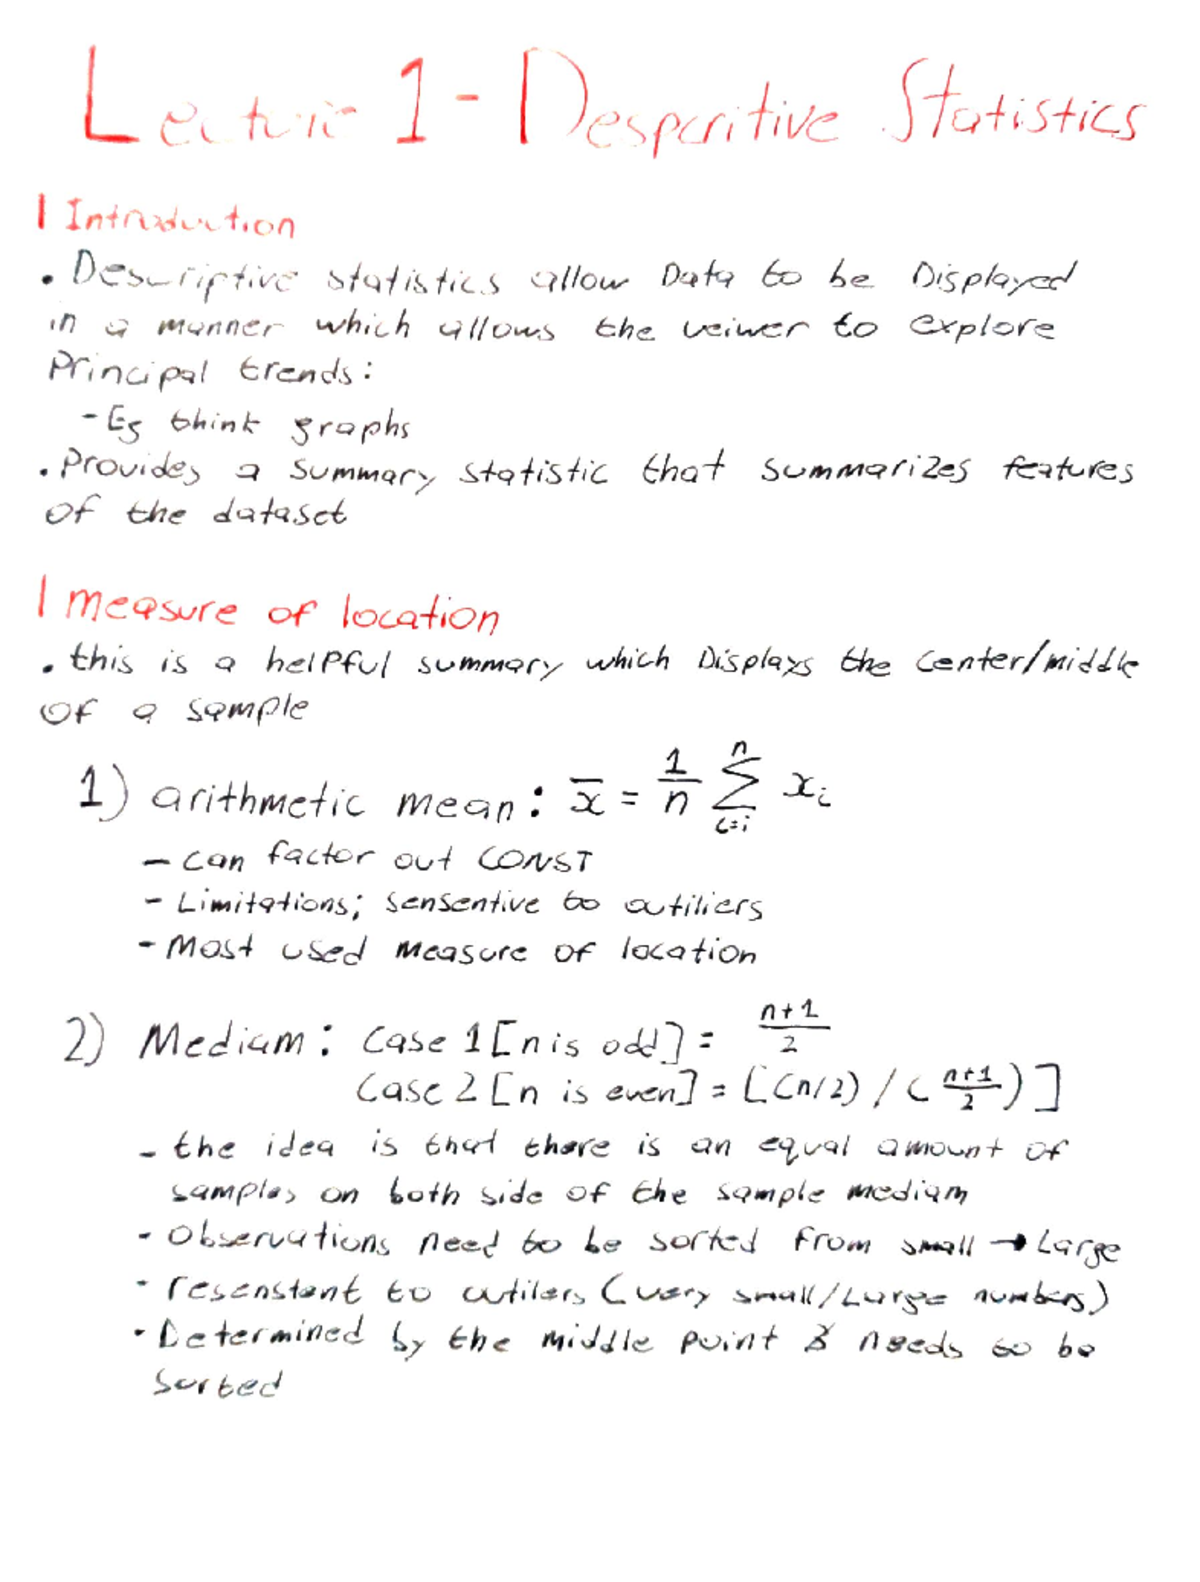 Lecture 1 - Despcritive Statistics
Introduction
• Descriptive statistics allow Data to be Displayed
in a manner which allows the veiwer to explore
Principal trends:
- Eg think graphs
• Provides a summary statistic that summarizes features
of the dataset
measure of location
• this is a helpful summary which Displays the center/middle
of a sample
1) arithmetic mean: x̄ = 1/n Σ_{i=i}^{n} x_i
- can factor out CONST
- Limitations; sensentive to outiliers
- Most used measure of location
2) Medium: Case 1 [n is odd] = n+1/2
Case 2 [n is even] = [(n/2) / (n+1/2)]
- the idea is that there is an equal amount of
samples on both side of the sample medium
- Observations need to be sorted from small → Large
- resenstant to outilers (very small/Large numbers)
- Determined by the middle point & needs to be
sorted